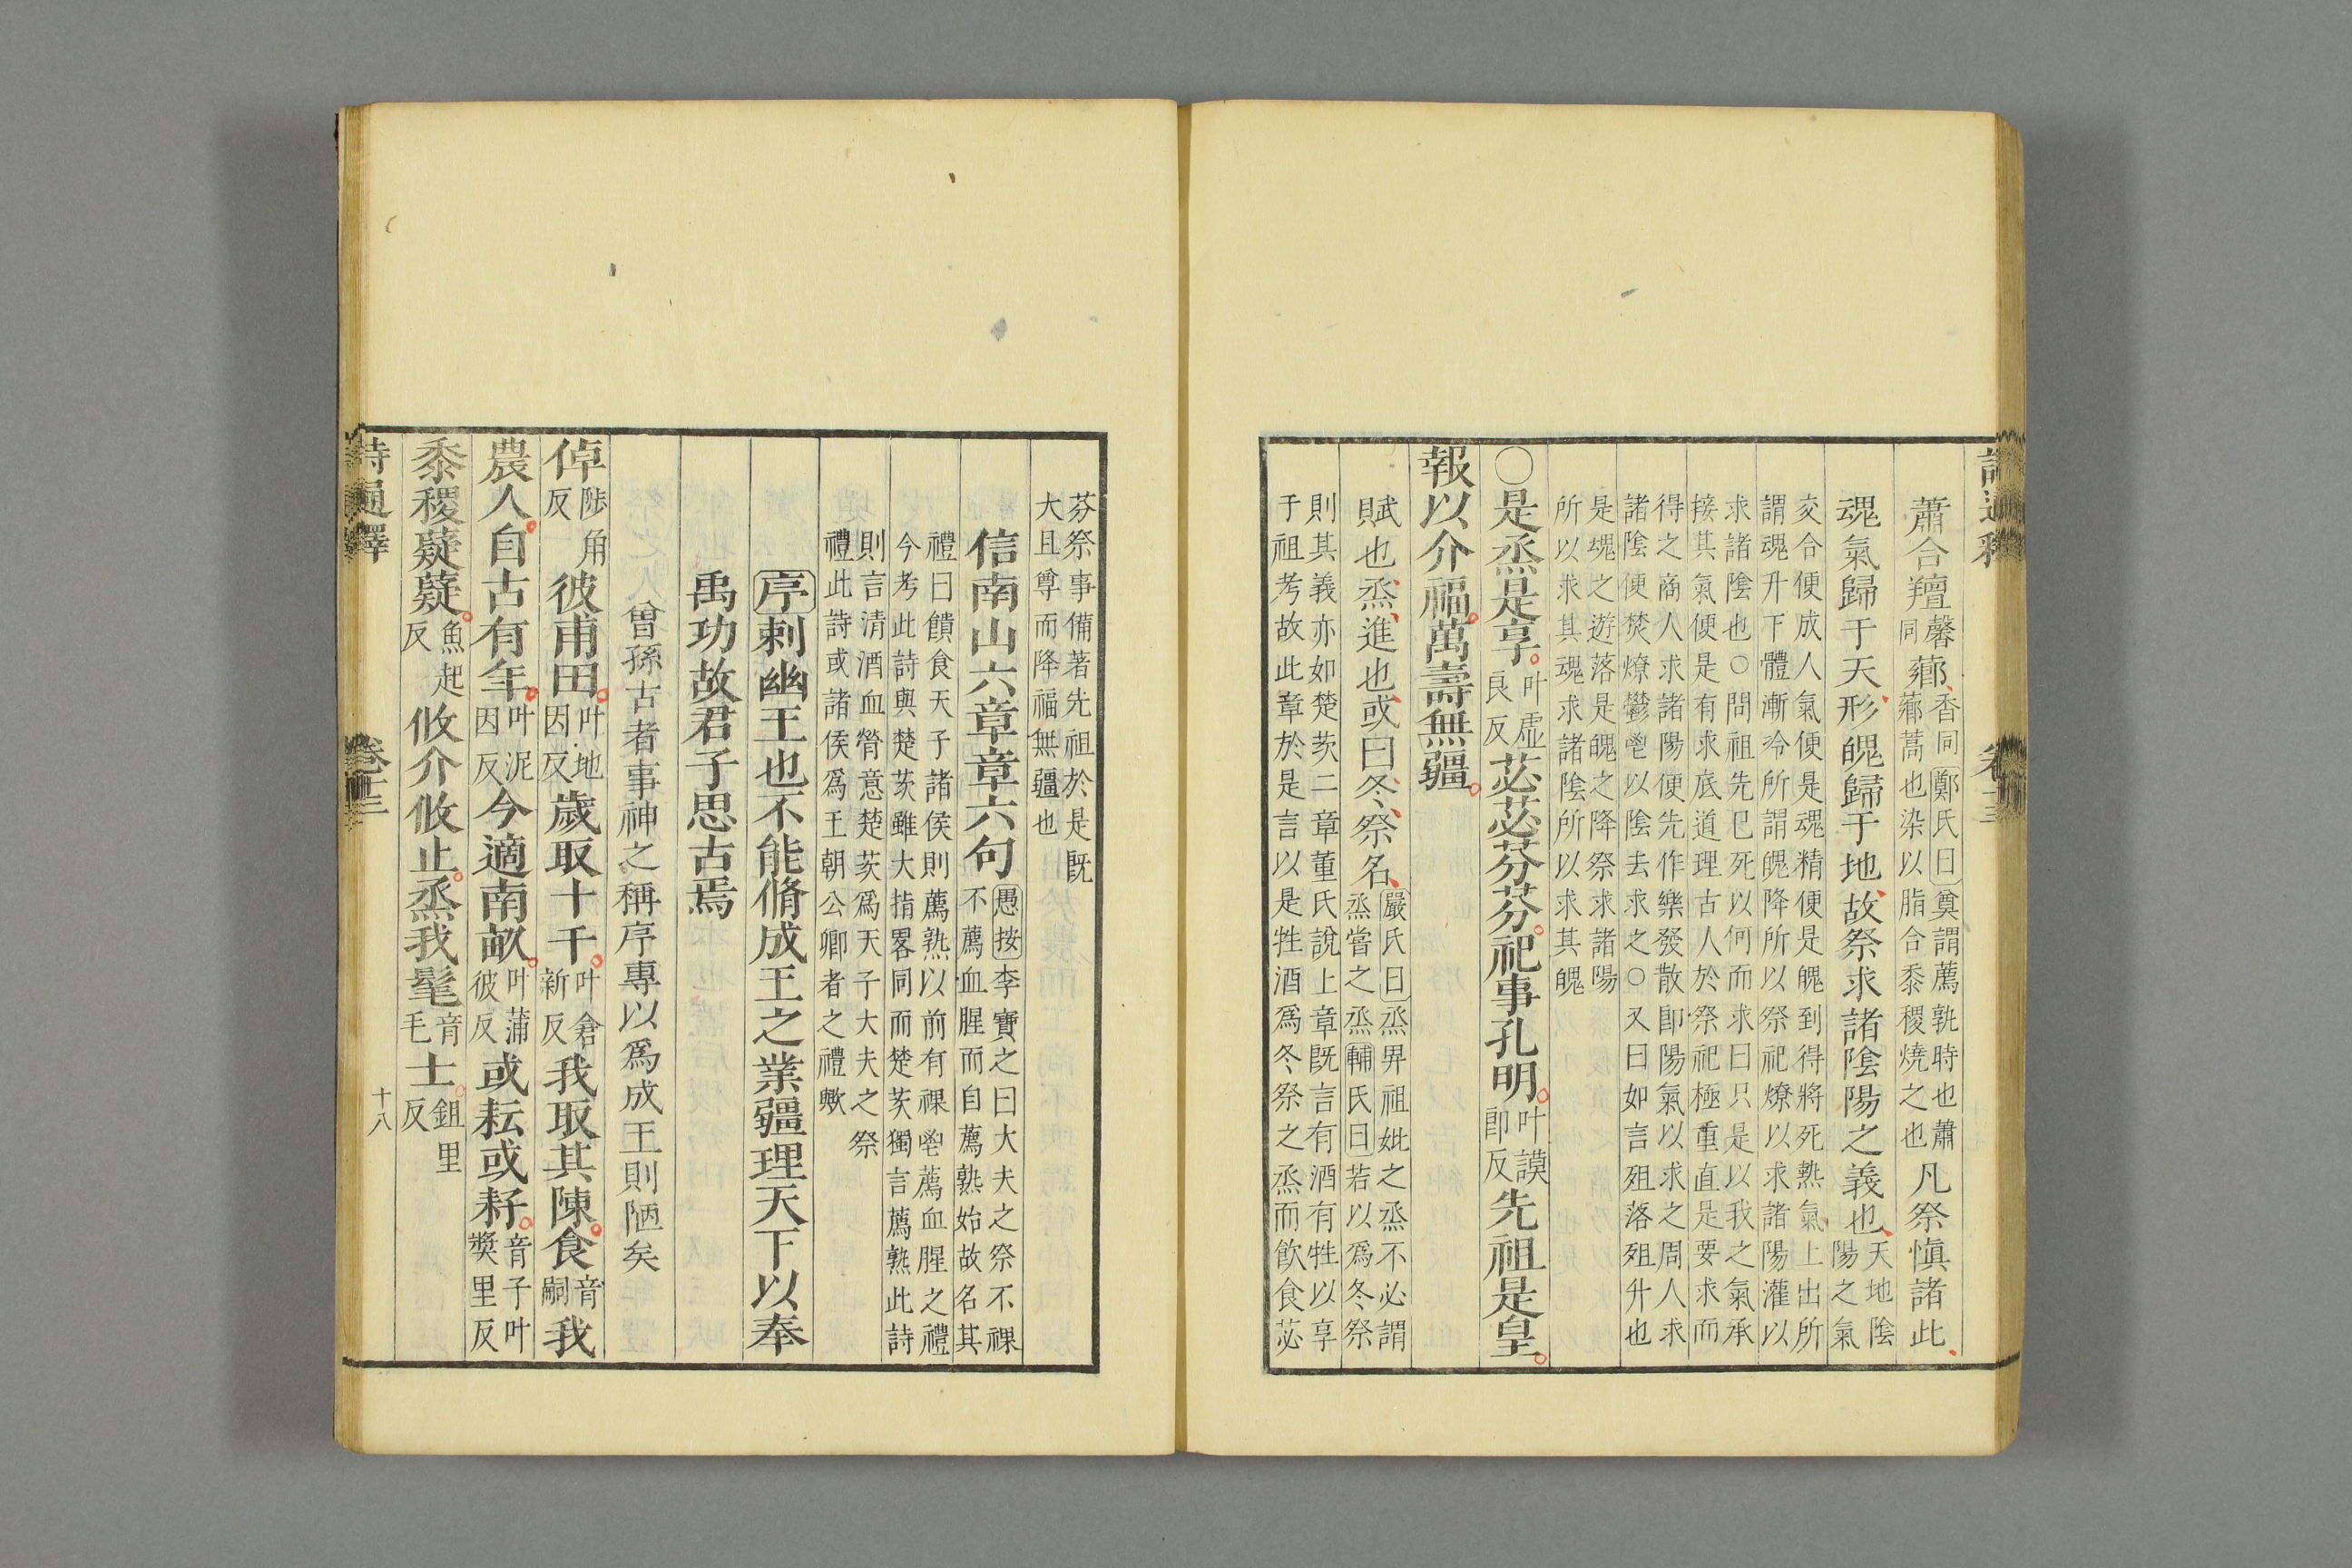 詩通釋 卷十三
蕭合羶馨同薌香同鄭氏曰奠謂薦孰時也蕭薌蒿也染以脂合黍稷燒之也凡祭愼諸此
魂氣歸于天形魄歸于地故祭求諸陰陽之義也天地陰陽之氣
交合便成人氣便是魂精便是魄到得將死熱氣上出所
謂魂升下體漸冷所謂魄降所以祭祀燎以求諸陽灌以
求諸陰也○問祖先已死以何而求曰只是以我之氣承
接其氣便是有求底道理古人於祭祀極重直是要求而
得之商人求諸陽便先作樂發散卽陽氣以求之周人求
諸陰便焚燎鬱鬯以陰去求之○又曰如言殂落殂升也
是魂之遊落是魄之降祭求諸陽
所以求其魂求諸陰所以求其魄
○是烝是享叶虛良反苾苾芬芬祀事孔明叶謨卽反先祖是皇
報以介福萬壽無疆
賦也烝進也或曰冬祭名嚴氏曰烝畀祖妣之烝不必謂烝嘗之烝輔氏曰若以爲冬祭
則其義亦如楚茨二章董氏說上章旣言有酒有牲以享
于祖考故此章於是言以是牲酒爲冬祭之烝而飮食苾
芬祭事備著先祖於是旣
大且尊而降福無疆也
信南山六章章六句愚按李寶之曰大夫之祭不祼不薦血腥而自薦熟始故名其
禮曰饋食天子諸侯則薦熟以前有祼鬯薦血腥之禮
今考此詩與楚茨雖大指畧同而楚茨獨言薦熟此詩
則言清酒血膋意楚茨爲天子大夫之祭
禮此詩或諸侯爲王朝公卿者之禮歟
序刺幽王也不能脩成王之業疆理天下以奉
禹功故君子思古焉
曾孫古者事神之稱序專以爲成王則陋矣
倬陟角反彼甫田叶地因反歲取十千叶倉新反我取其陳食音嗣我
農人自古有年叶泥因反今適南畝叶蒲彼反或耘或耔音子叶奬里反
黍稷薿薿魚起反攸介攸止烝我髦音毛士鉏里反
詩通釋 卷十三 十八